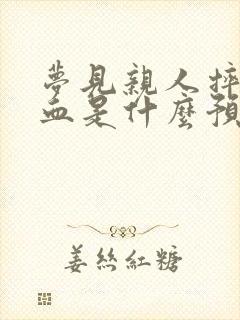 夢見親人摔
血是什麼預
姜絲紅糖